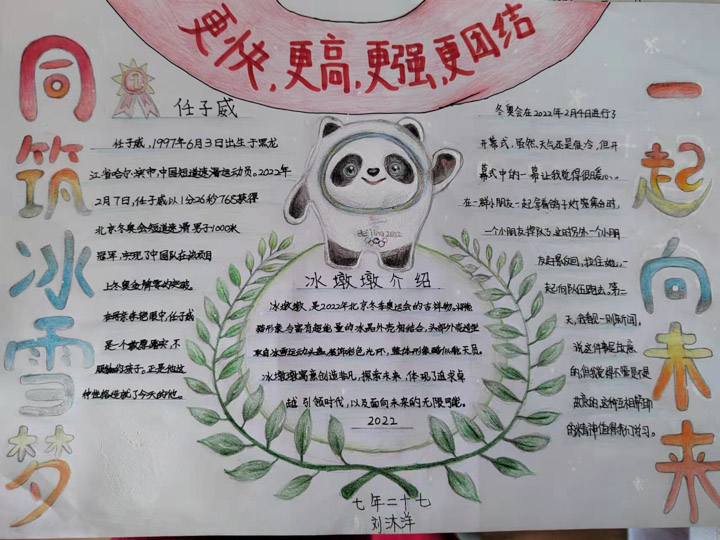 更快,更高,更强,更团结
同筑冰雪梦
任子威
任子威,1997年6月3日出生于黑龙
江省哈尔滨市,中国短道速滑运动员。2022年
2月7日,任子威以1分26秒765获得
北京冬奥会短道速滑男子1000米
冠军,实现了中国队在该项目
上冬奥金牌零的突破。
在
眼中,任子威
是一个
踏实,不
的孩子,正是他这
种性格造就了今天的他。
Beijing 2022
冰墩墩介绍
冰墩墩,是2022年北京冬季奥运会的吉祥物。将熊
猫形象与富有超能量的冰晶外壳相结合,头部外壳造型
取自冰雪运动头盔,装饰彩色光环,整体形象酷似航天员。
冰墩墩寓意创造非凡,探索未来,体现了追求卓
越 引领时代,以及面向未来的无限可能。
2022
七年二十七
刘沐洋
冬奥会在2022年2月4日进行了
开幕式,虽然天气还是很冷,但开
幕式中的一幕让我觉得很暖心。
在一群小朋友一起拿着鸽子灯聚集台时,
一个小朋友掉队了,这时另外一个小朋
友赶紧
回,拉住她,一
起向队伍跑去,第二
天,我看见一则新闻,
说这件事是故意
的,但我觉得不管是不是
故意的,这种互相帮助
的精神值得我们学习。
一起向未来